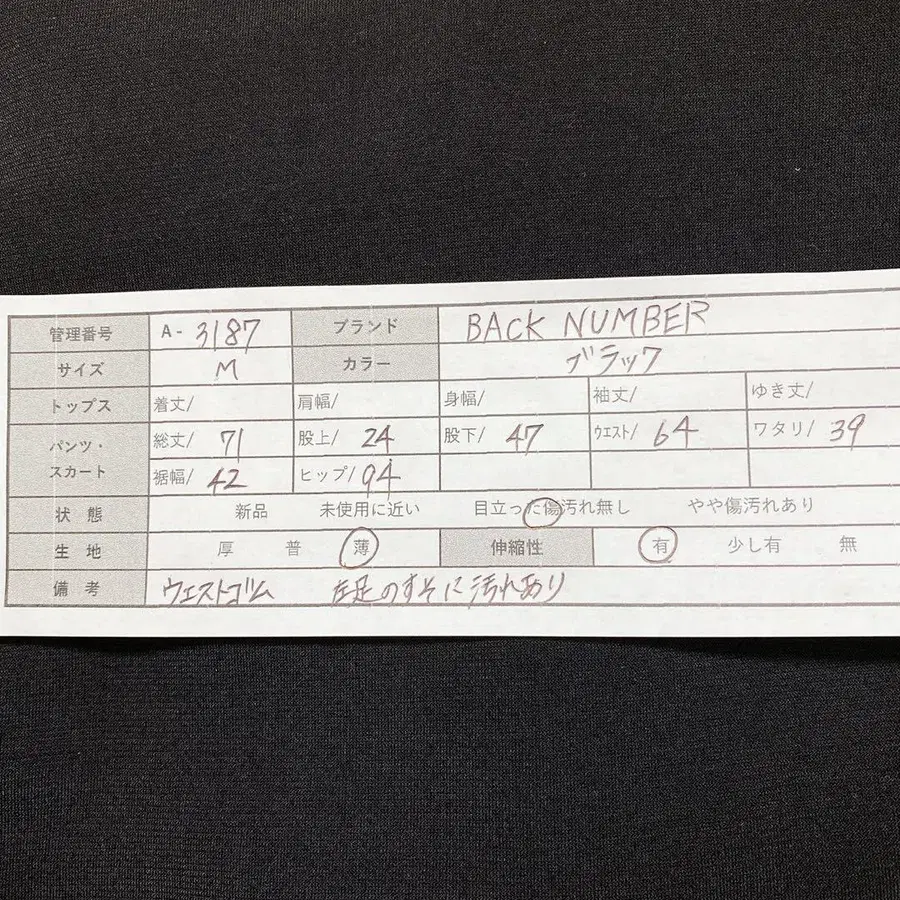 管理番号 A- 3187 ブランド BACK NUMBER
サイズ M カラー ブラック
トップス 着丈/ 肩幅/ 身幅/ 袖丈/ ゆき丈/
パンツ・スカート 総丈/ 71 股上/ 24 股下/ 47 ウエスト/ 64 ワタリ/ 39
裾幅/ 42 ヒップ/ 94
状態 新品 未使用に近い 目立った傷汚れ無し やや傷汚れあり
生地 厚 普 薄 伸縮性 有 少し有 無
備考 ウエストゴム 左足のすそに汚れあり